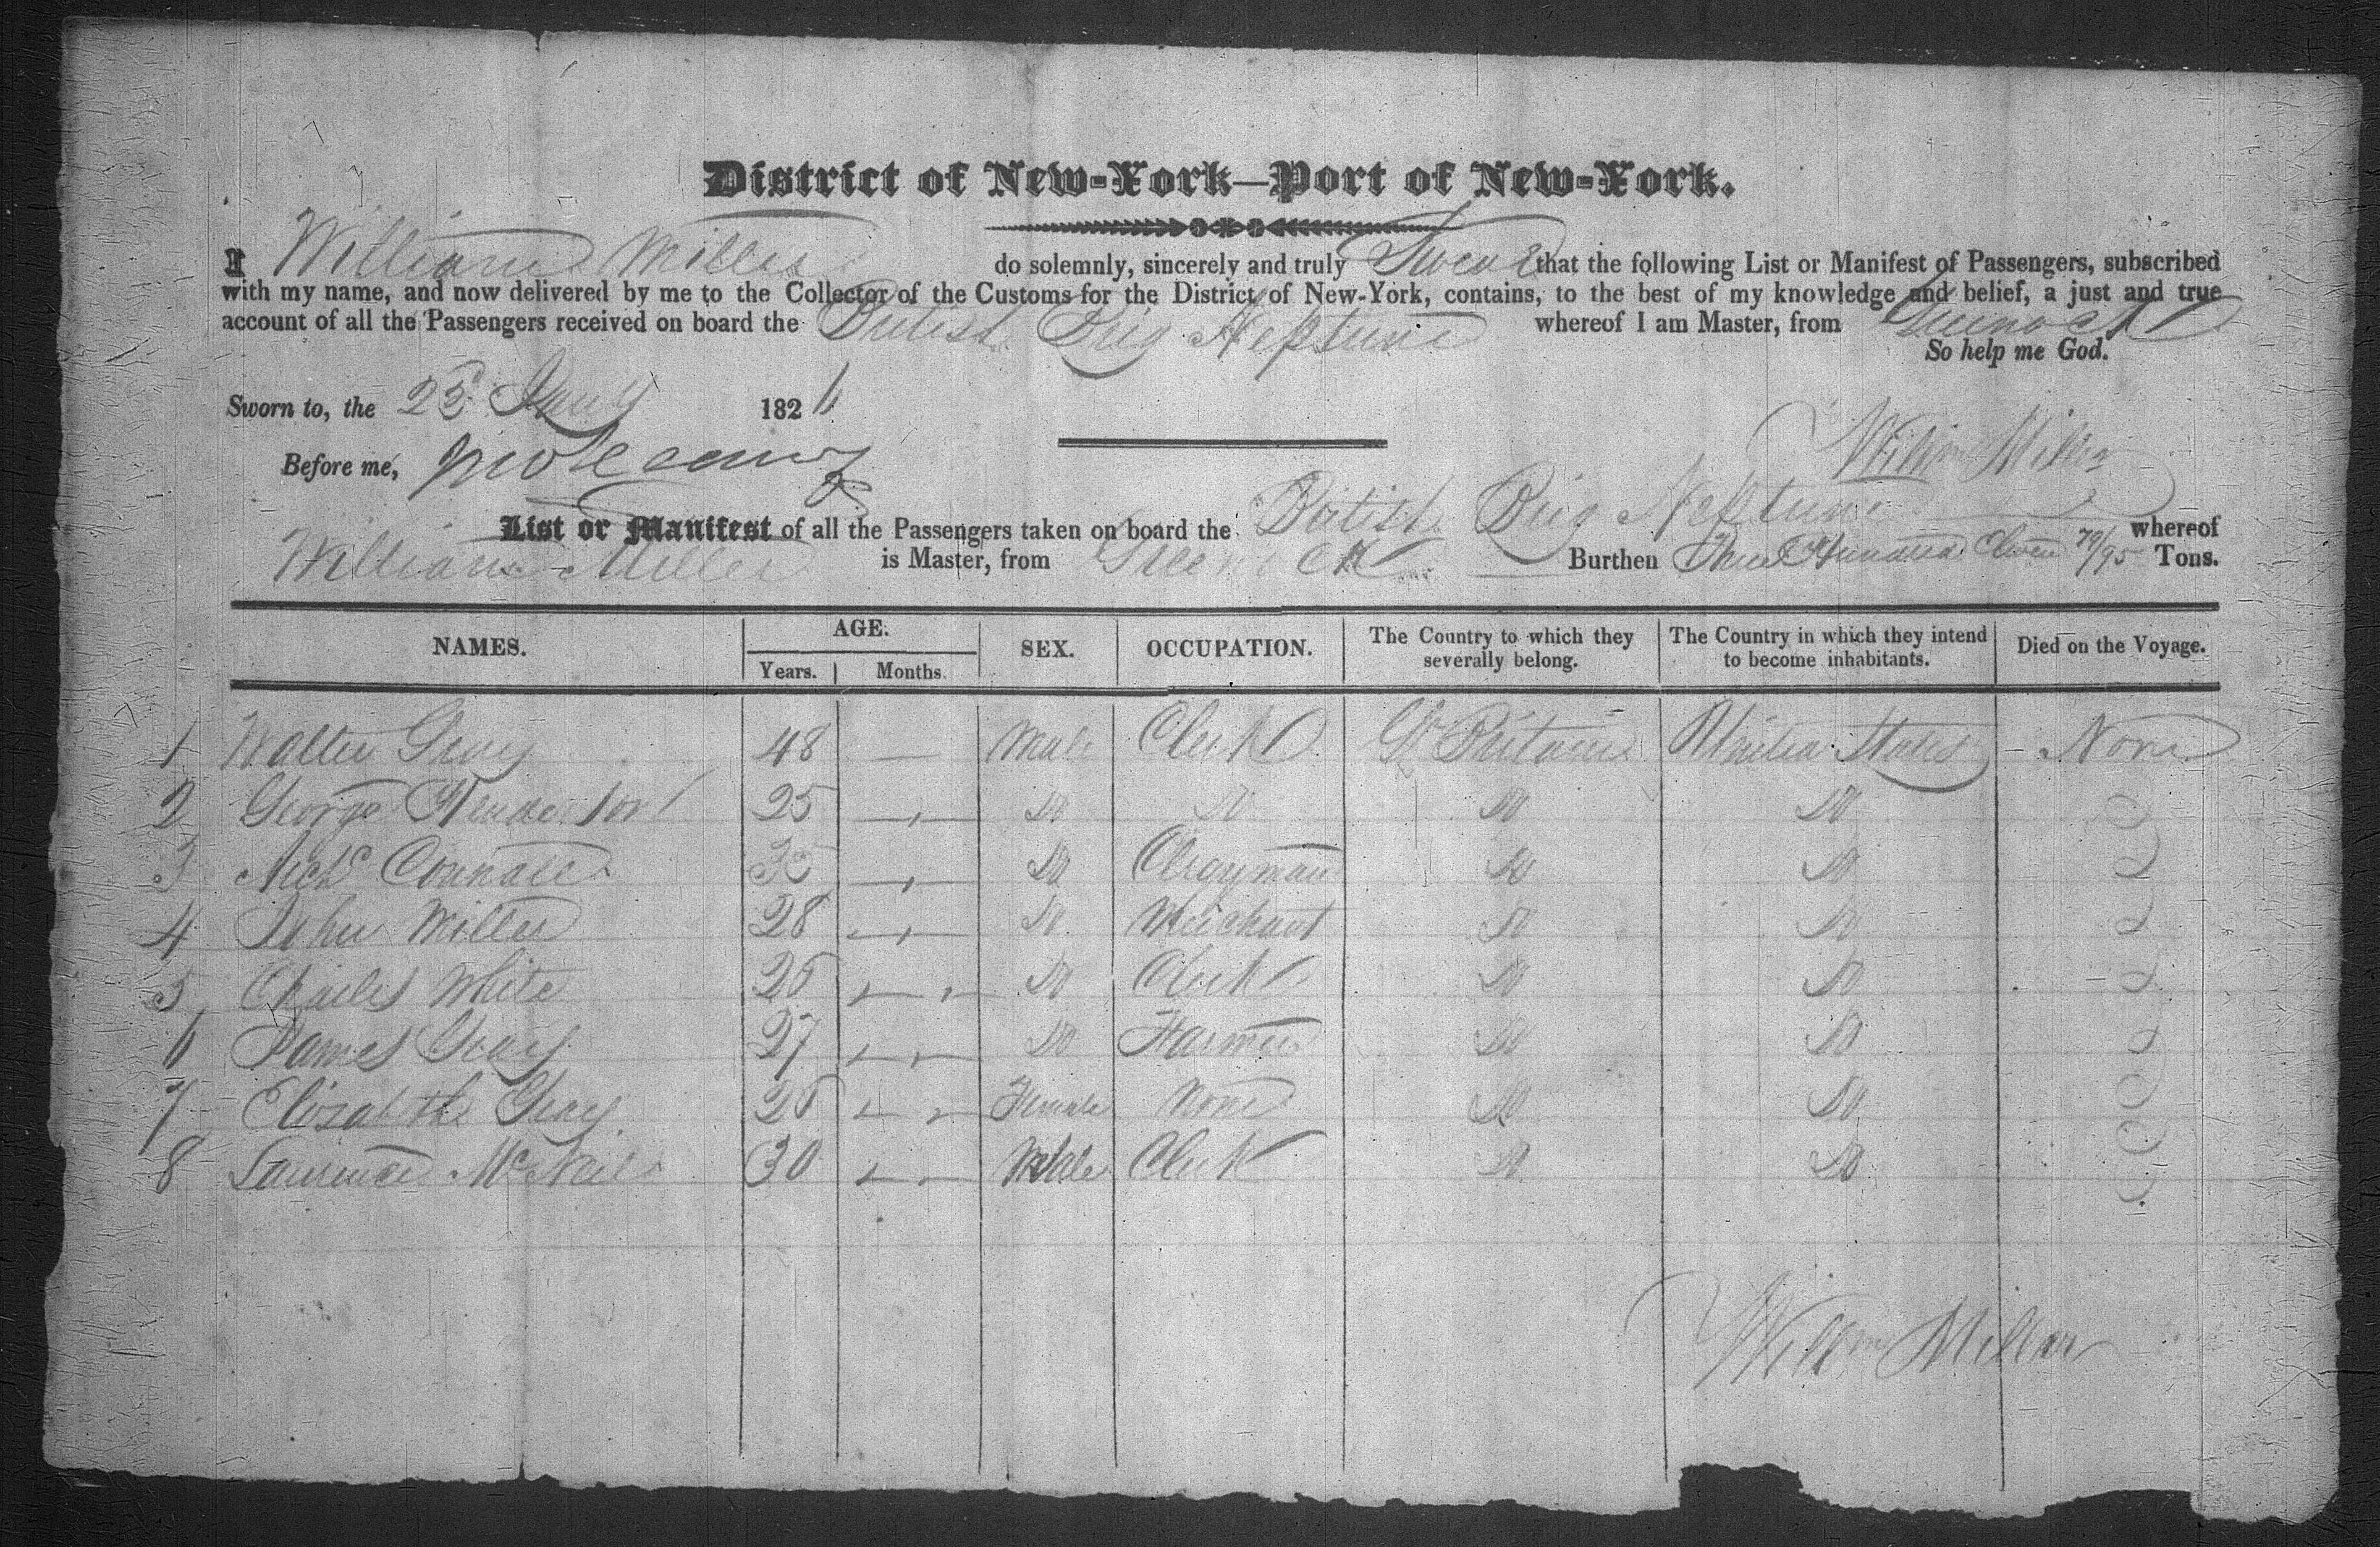 District of New-York—Port of New-York.
I William Miller do solemnly, sincerely and truly Swear that the following List or Manifest of Passengers, subscribed
with my name, and now delivered by me to the Collector of the Customs for the District of New-York, contains, to the best of my knowledge and belief, a just and true
account of all the Passengers received on board the British Brig Neptune whereof I am Master, from Greenock
So help me God.
Sworn to, the 23 Jany 1826
Before me,
Willm Miller
List or Manifest of all the Passengers taken on board the British Brig Neptune whereof
William Miller is Master, from Greenock Burthen Three Hundred Eleven 70/95 Tons.
NAMES. AGE. SEX. OCCUPATION. The Country to which they severally belong. The Country in which they intend to become inhabitants. Died on the Voyage.
Years. Months.
1 Walter Gray 48 — Male Clerk Gt Britain United States None
2 George Henderson 25 — Do Do Do Do
3 Connall — Do Clergyman Do Do
4 John Miller 28 — Do Merchant Do Do
5 Charles White 25 — Do Clerk Do Do
6 James Gray 27 — Do Farmer Do Do
7 Elizabeth Gray 26 — Female None Do Do
8 Laurence McNeil 30 — Male Clerk Do Do
Willm Miller